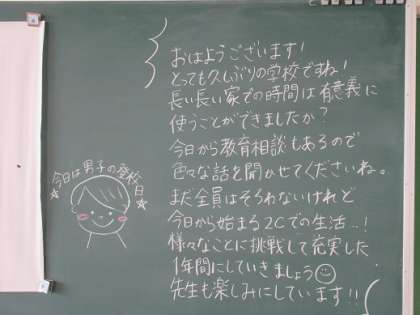 おはようございます!
とっても久しぶりの学校ですね!
長い長い家での時間は有意義に
使うことができましたか?
今日から教育相談もあるので
色々な話を聞かせてくださいね。
まだ全員はそろわないけれど
今日から始まる2Cでの生活…!
様々なことに挑戦して充実した
1年間にしていきましょう
先生も楽しみにしています!!
☆今日は男子の登校日☆